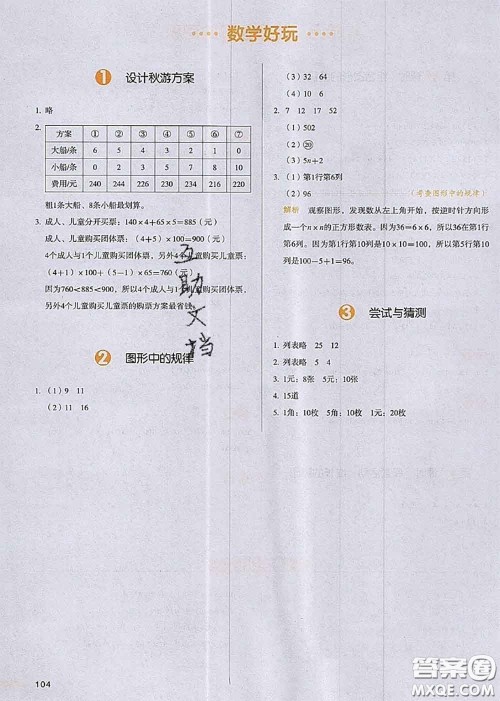 数学好玩
1 设计秋游方案
1. 略
2.
方案 ① ② ③ ④ ⑤ ⑥ ⑦
大船/条 6 5 4 3 2 1 0
小船/条 0 2 3 5 6 8 10
费用/元 240 244 226 230 212 216 220
租1条大船、8条小船最划算。
3. 成人、儿童分开买票：140×4+65×5=885（元）
成人、儿童购买团体票：（4+5）×100=900（元）
4个成人与1个儿童购买团体票，另外4个儿童购买儿童票：
（4+1）×100+（5-1）×65=760（元）
因为760<885<900，所以4个成人与1个儿童购买团体票，
另外4个儿童购买儿童票的购票方案最省钱。
2 图形中的规律
1.（1）9 11
（2）11 16
（3）32 64
（4）10 6
2. 7 12 17 52
（1）502
（2）⑳
（3）5n+2
3.（1）第1行第6列
（2）96 （考查图形中的规律）
解析 观察图形，发现数从左上角开始，按逆时针方向形
成一个n×n的正方形数表。因为36=6×6，所以36在第1行
第6列。因为第1行第10列是10×10=100，所以第5行第10
列是100-5+1=96。
3 尝试与猜测
1. 列表略 25 12
2. 列表略 5 4
3. 1元：8张 5元：10张
4. 15道
5. 1角：10枚 5角：10枚 1元：20枚
互助文档
104
答案圈
MXQE.COM